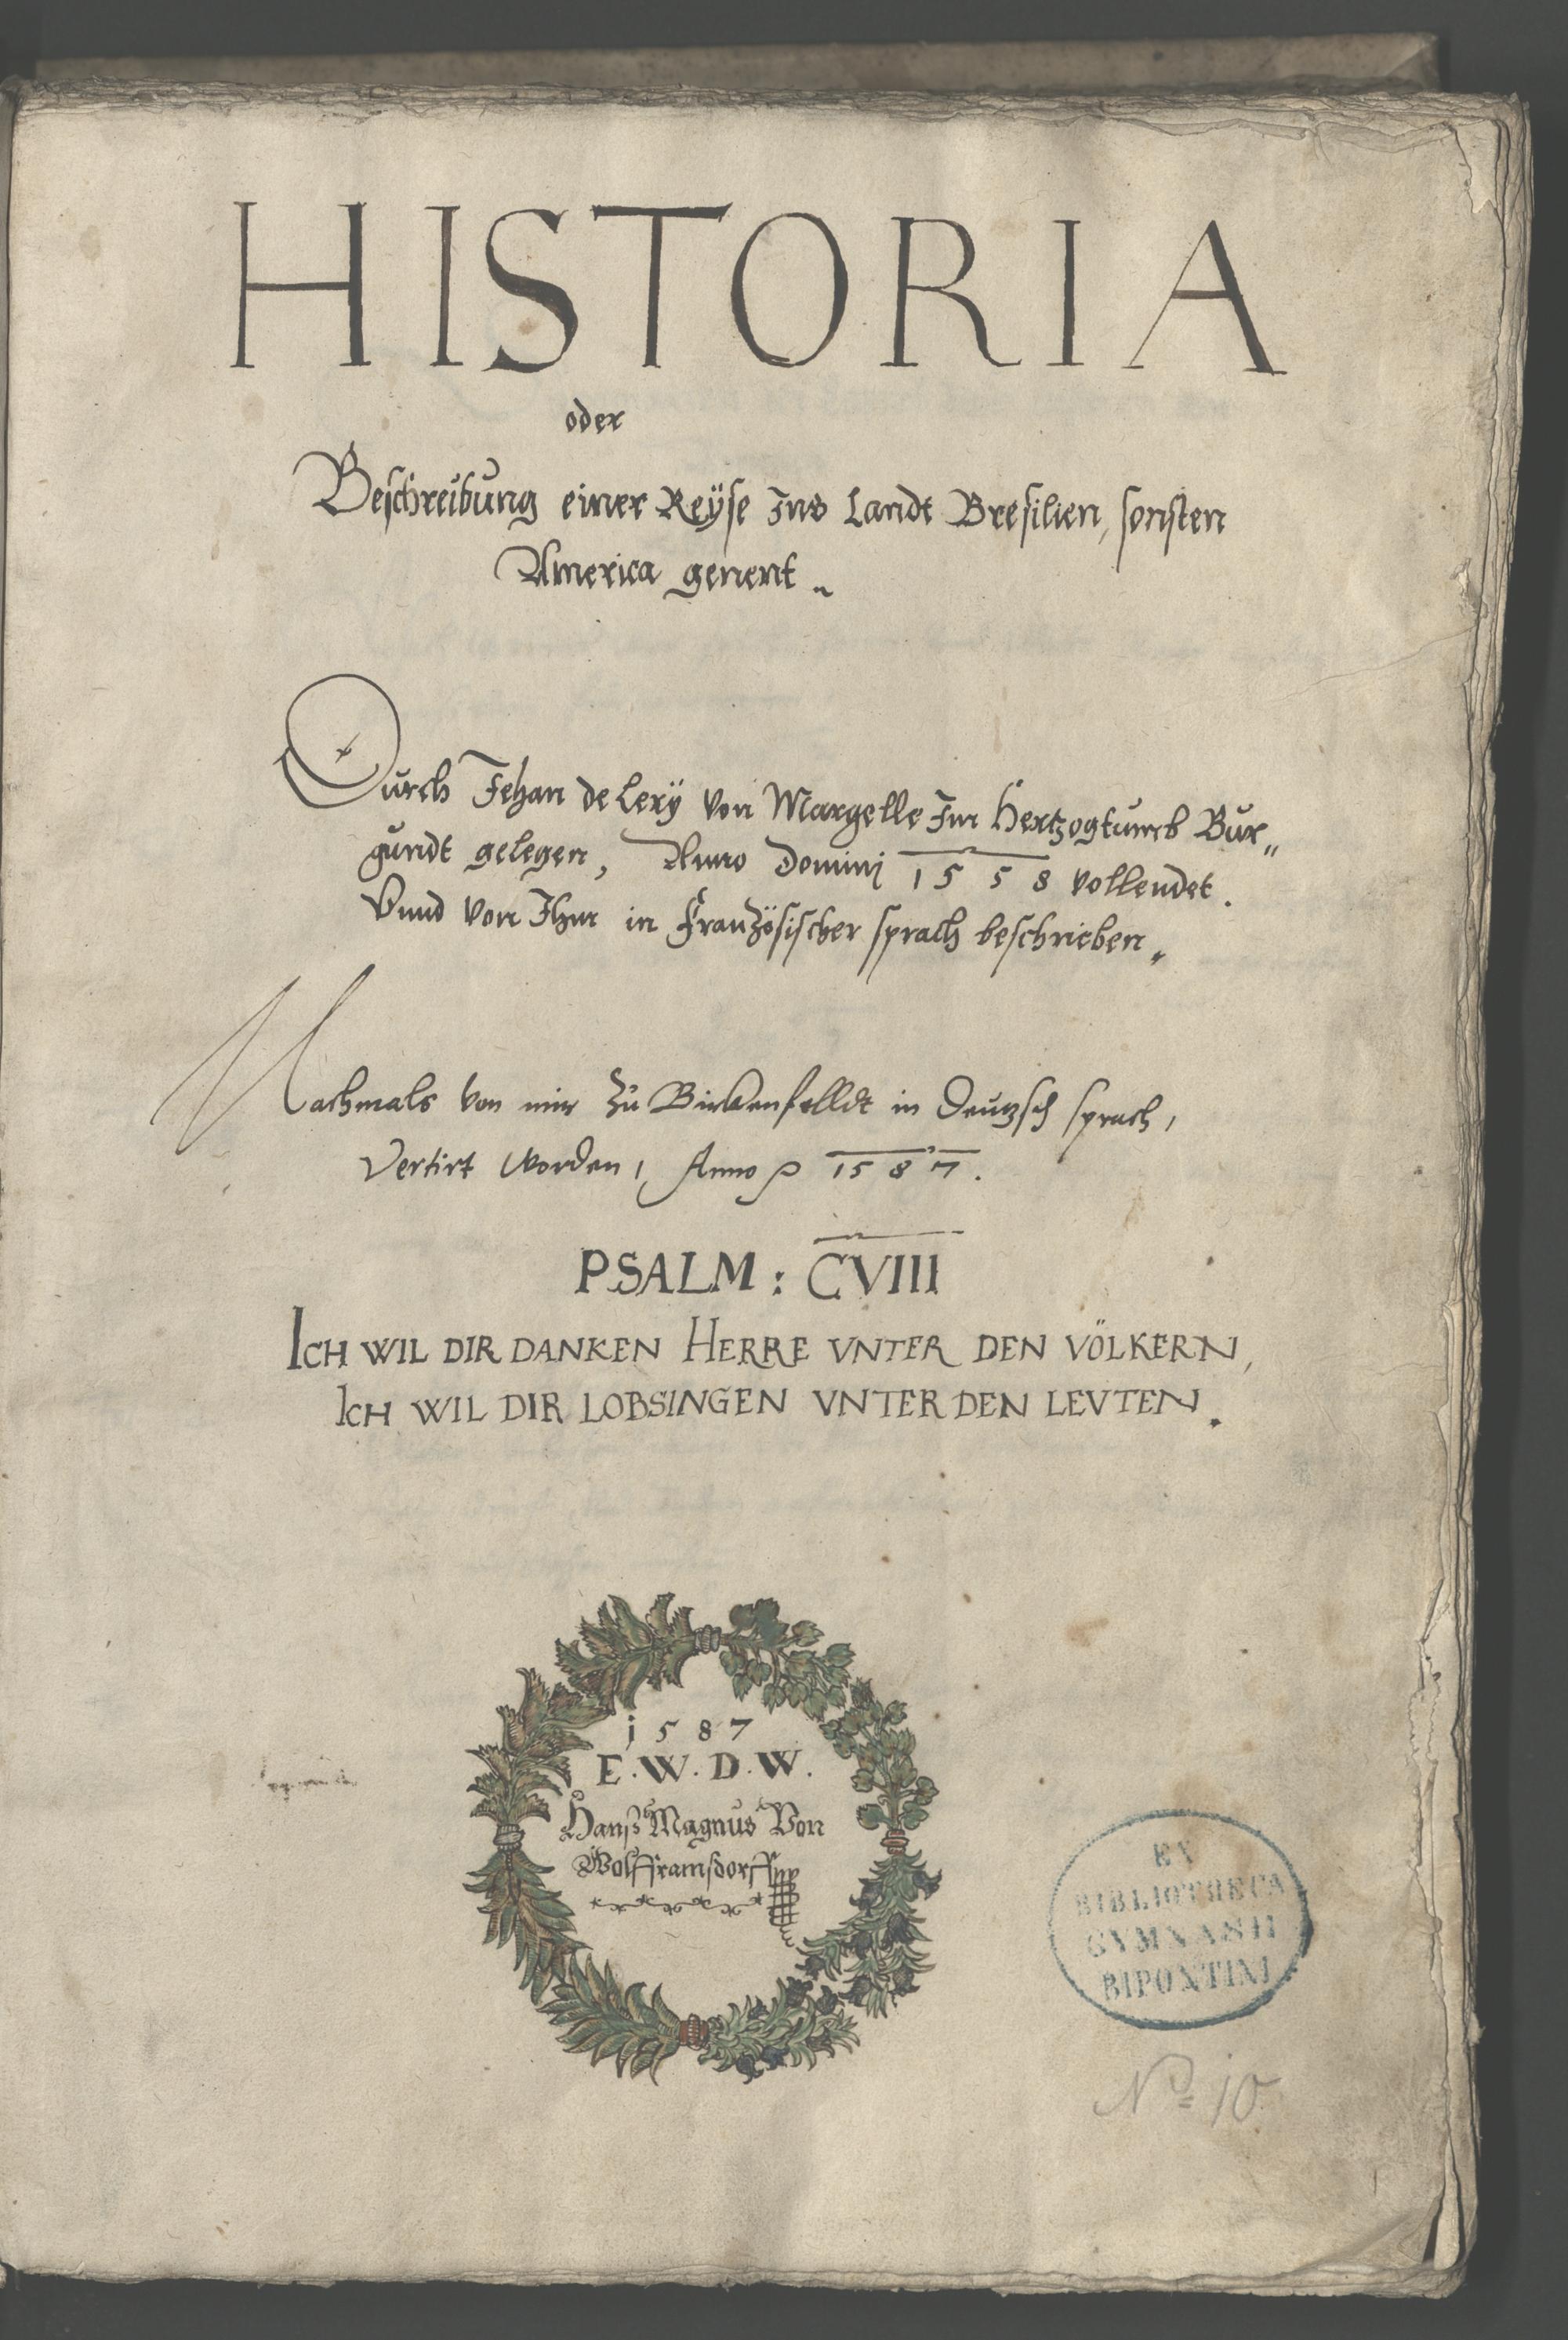 HISTORIA
oder
Beschreibung einer Reÿse Ins Landt Bresilien, sonsten
America genent.
Durch Jehan de Lerÿ von Margelle Im Hertzogtumb Bur„
gundt gelegen, Anno Domini 1558 vollendet.
Vnnd von Ihm in Französischer sprach beschrieben„
Nachmals von mir zu Birkenfelldt in Deutzsch sprach,
Vertirt worden, Anno 1587.
PSALM: CVIII
ICH WIL DIR DANKEN HERRE VNTER DEN VÖLKERN,
ICH WIL DIR LOBSINGEN VNTER DEN LEVTEN.
1587
E.W.D.W.
Hanß Magnus Von
Wolfframsdorff
EX
BIBLIOTHECA
GYMNASII
BIPONTINI
No 10